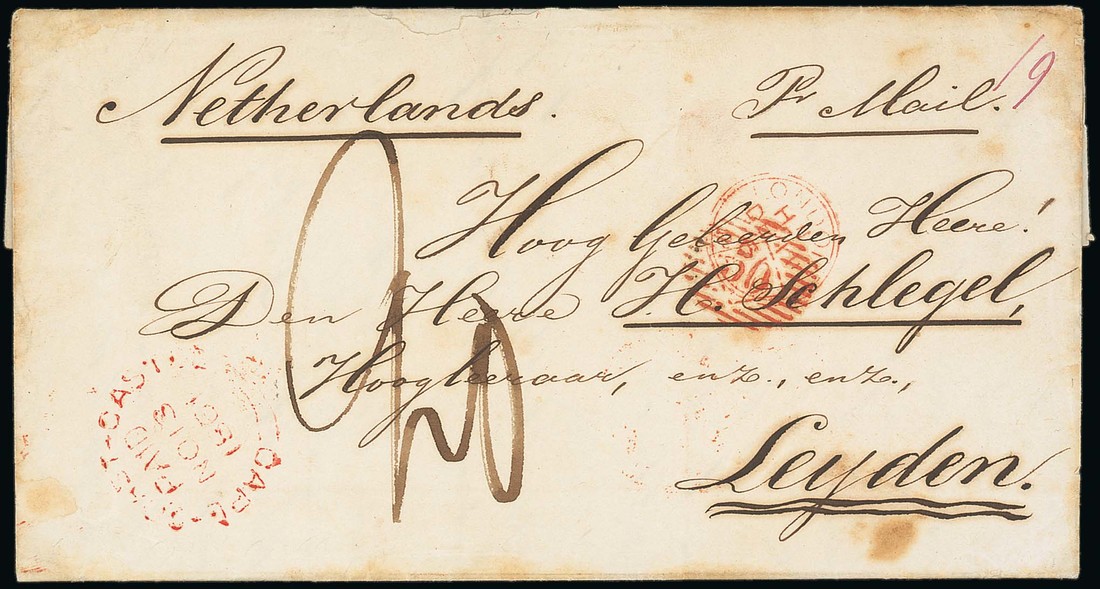 Netherlands.
Pr Mail.
19
Hoog Geleerden Heere!
Den Heere H. Schlegel,
Hoogleeraar, enz., enz.,
Leyden.
CAPE COAST CASTLE
PAID
LONDON
PAID